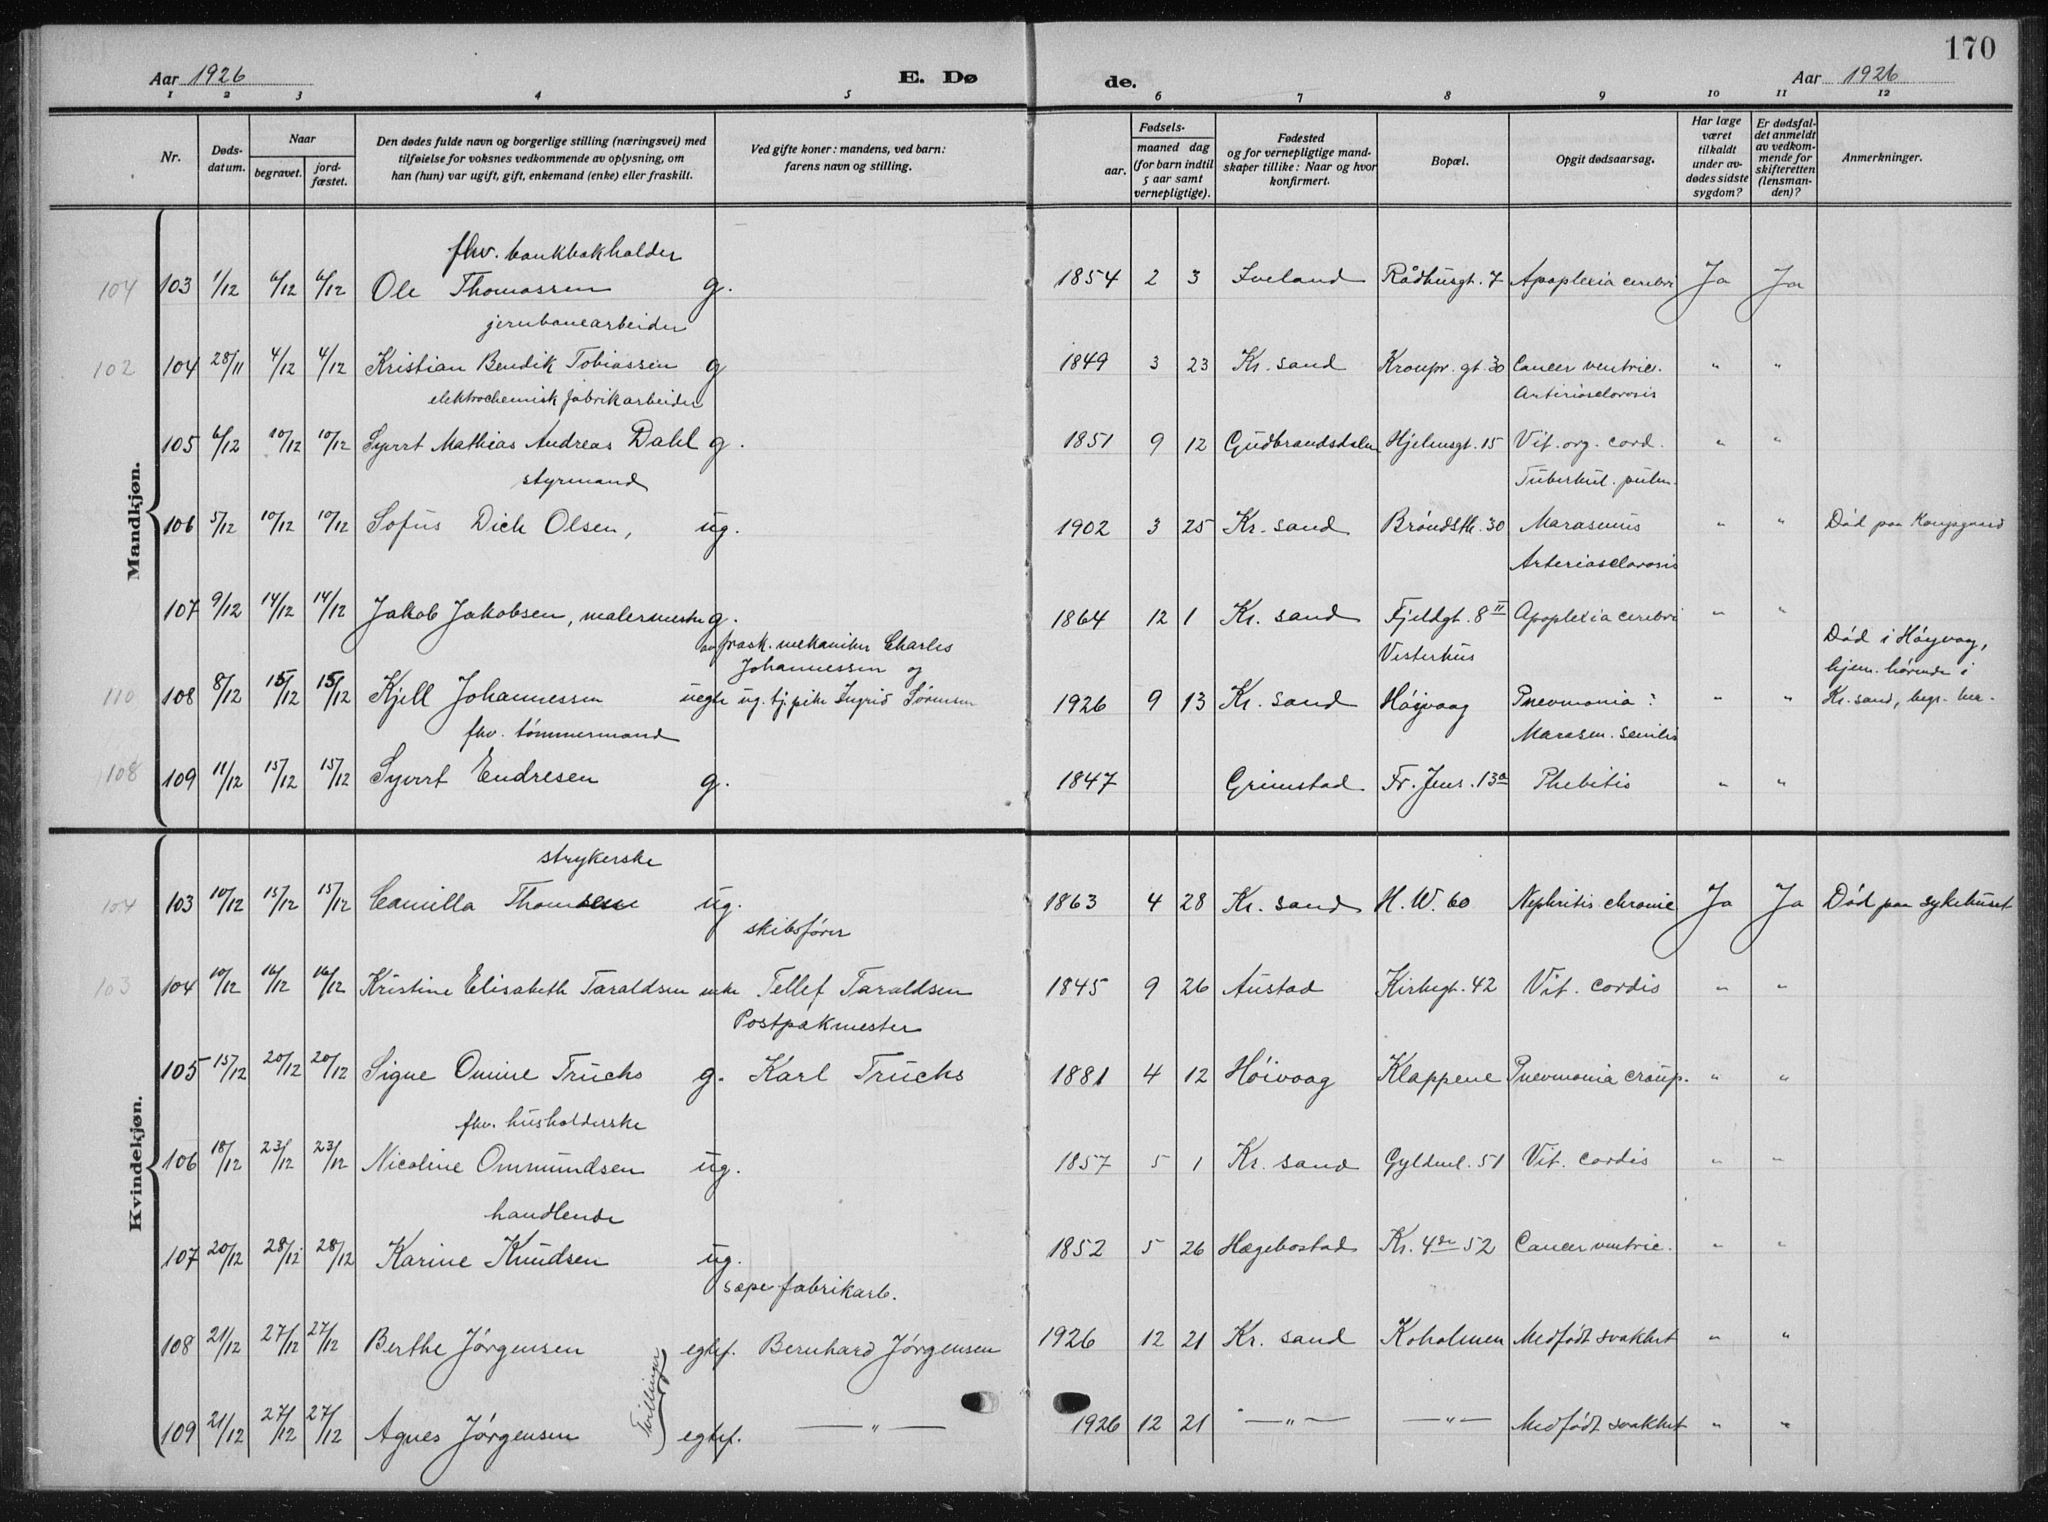 170
Aar 1926 E. Dø de. Aar 1926
1 2 3 4 5 6 7 8 9 10 11 12
Nr. Døds-datum. Naar begravet. jord-fæstet. Den dødes fulde navn og borgerlige stilling (næringsvei) med tilføielse for voksnes vedkommende av oplysning, om han (hun) var ugift, gift, enkemand (enke) eller fraskilt. Ved gifte koner: mandens, ved barn: farens navn og stilling. Fødsels- aar. maaned dag (for barn indtil 5 aar samt vernepligtige). Fødested og for vernepligtige mand-skaper tillike: Naar og hvor konfirmert. Bopæl. Opgit dødsaarsag. Har læge været tilkaldt under av-dødes sidste sygdom? Er dødsfal-det anmeldt av vedkom-mende for skifteretten (lensman-den)? Anmerkninger.
Mandkjøn.
fhv. bankbokholder
104 103 1/12 6/12 6/12 Ole Thomassen g. 1854 2 3 Iveland Rådhusgt. 7 Apoplexia cerebri Ja Ja
jernbanearbeider
102 104 28/11 4/12 4/12 Kristian Bendik Tobiassen g 1849 3 23 Kr. sand Kronpr. gt. 30 Cancer ventric. " "
elektrochemisk fabrikarbeider Arteriosclorosis
105 6/12 10/12 10/12 Syvert Mathias Andreas Dahl g. 1851 9 12 Gudbrandsdalen Hjelmsgt. 15 Vit. org. cord. " "
styrmand Tuberkul. pulm.
106 5/12 10/12 10/12 Sofus Dick Olsen, ug. 1902 3 25 Kr. sand Brøndstk. 30 Marasmus " " Død paa Kongsgaard
Arteriosclorosis
107 9/12 14/12 14/12 Jakob Jakobsen, malermester g. 1864 12 1 Kr. sand Fjeldgt. 8 II Apoplexia cerebri " "
av frask. mekaniker Charles Johannessen og Vesterhus Død i Høyvaag, hjem. hørende i
110 108 8/12 15/12 15/12 Kjell Johannessen uegte ug. tj. pike Ingrid Sørensen 1926 9 13 Kr. sand Høivaag Pneumonia " " Kr. sand, begr. her.
fhv. tømmermand Marasm. senilis
108 109 11/12 15/12 15/12 Syvert Endresen g. 1847 Grimstad Fr. Jens. 13a Phebitis " "
Kvindekjøn.
strykerske
104 103 10/12 15/12 15/12 Camilla Thomsen ug. 1863 4 28 Kr. sand H. W. 60 Nephritis chronic Ja Ja Død paa sykehuset
skibsfører
103 104 10/12 16/12 16/12 Kristine Elisabeth Taraldsen enke Tellef Taraldsen 1845 9 26 Austad Kirkegt. 42 Vit. cordis " "
Postpakmester
105 15/12 20/12 20/12 Signe Omine Fuchs g. Karl Fuchs 1881 4 12 Høivaag Klappene Pneumonia croup. " "
fhv. husholderske
106 18/12 23/12 23/12 Nicoline Ommundsen ug. 1857 5 1 Kr. sand Gyldenl. 51 Vit. cordis " "
handlende
107 20/12 28/12 28/12 Karine Knudsen ug. 1852 5 26 Hægebostad Kr. 4de 52 Cancer ventric. " "
sæpefabrikarb.
108 21/12 27/12 27/12 Berthe Jørgensen egtef. Bernhard Jørgensen 1926 12 21 Kr. sand Koholmen Medfødt svakhet " "
Tvillinger
109 21/12 27/12 27/12 Agnes Jørgensen egtef. — " — 1926 12 21 — " — — " — Medfødt svakhet " "